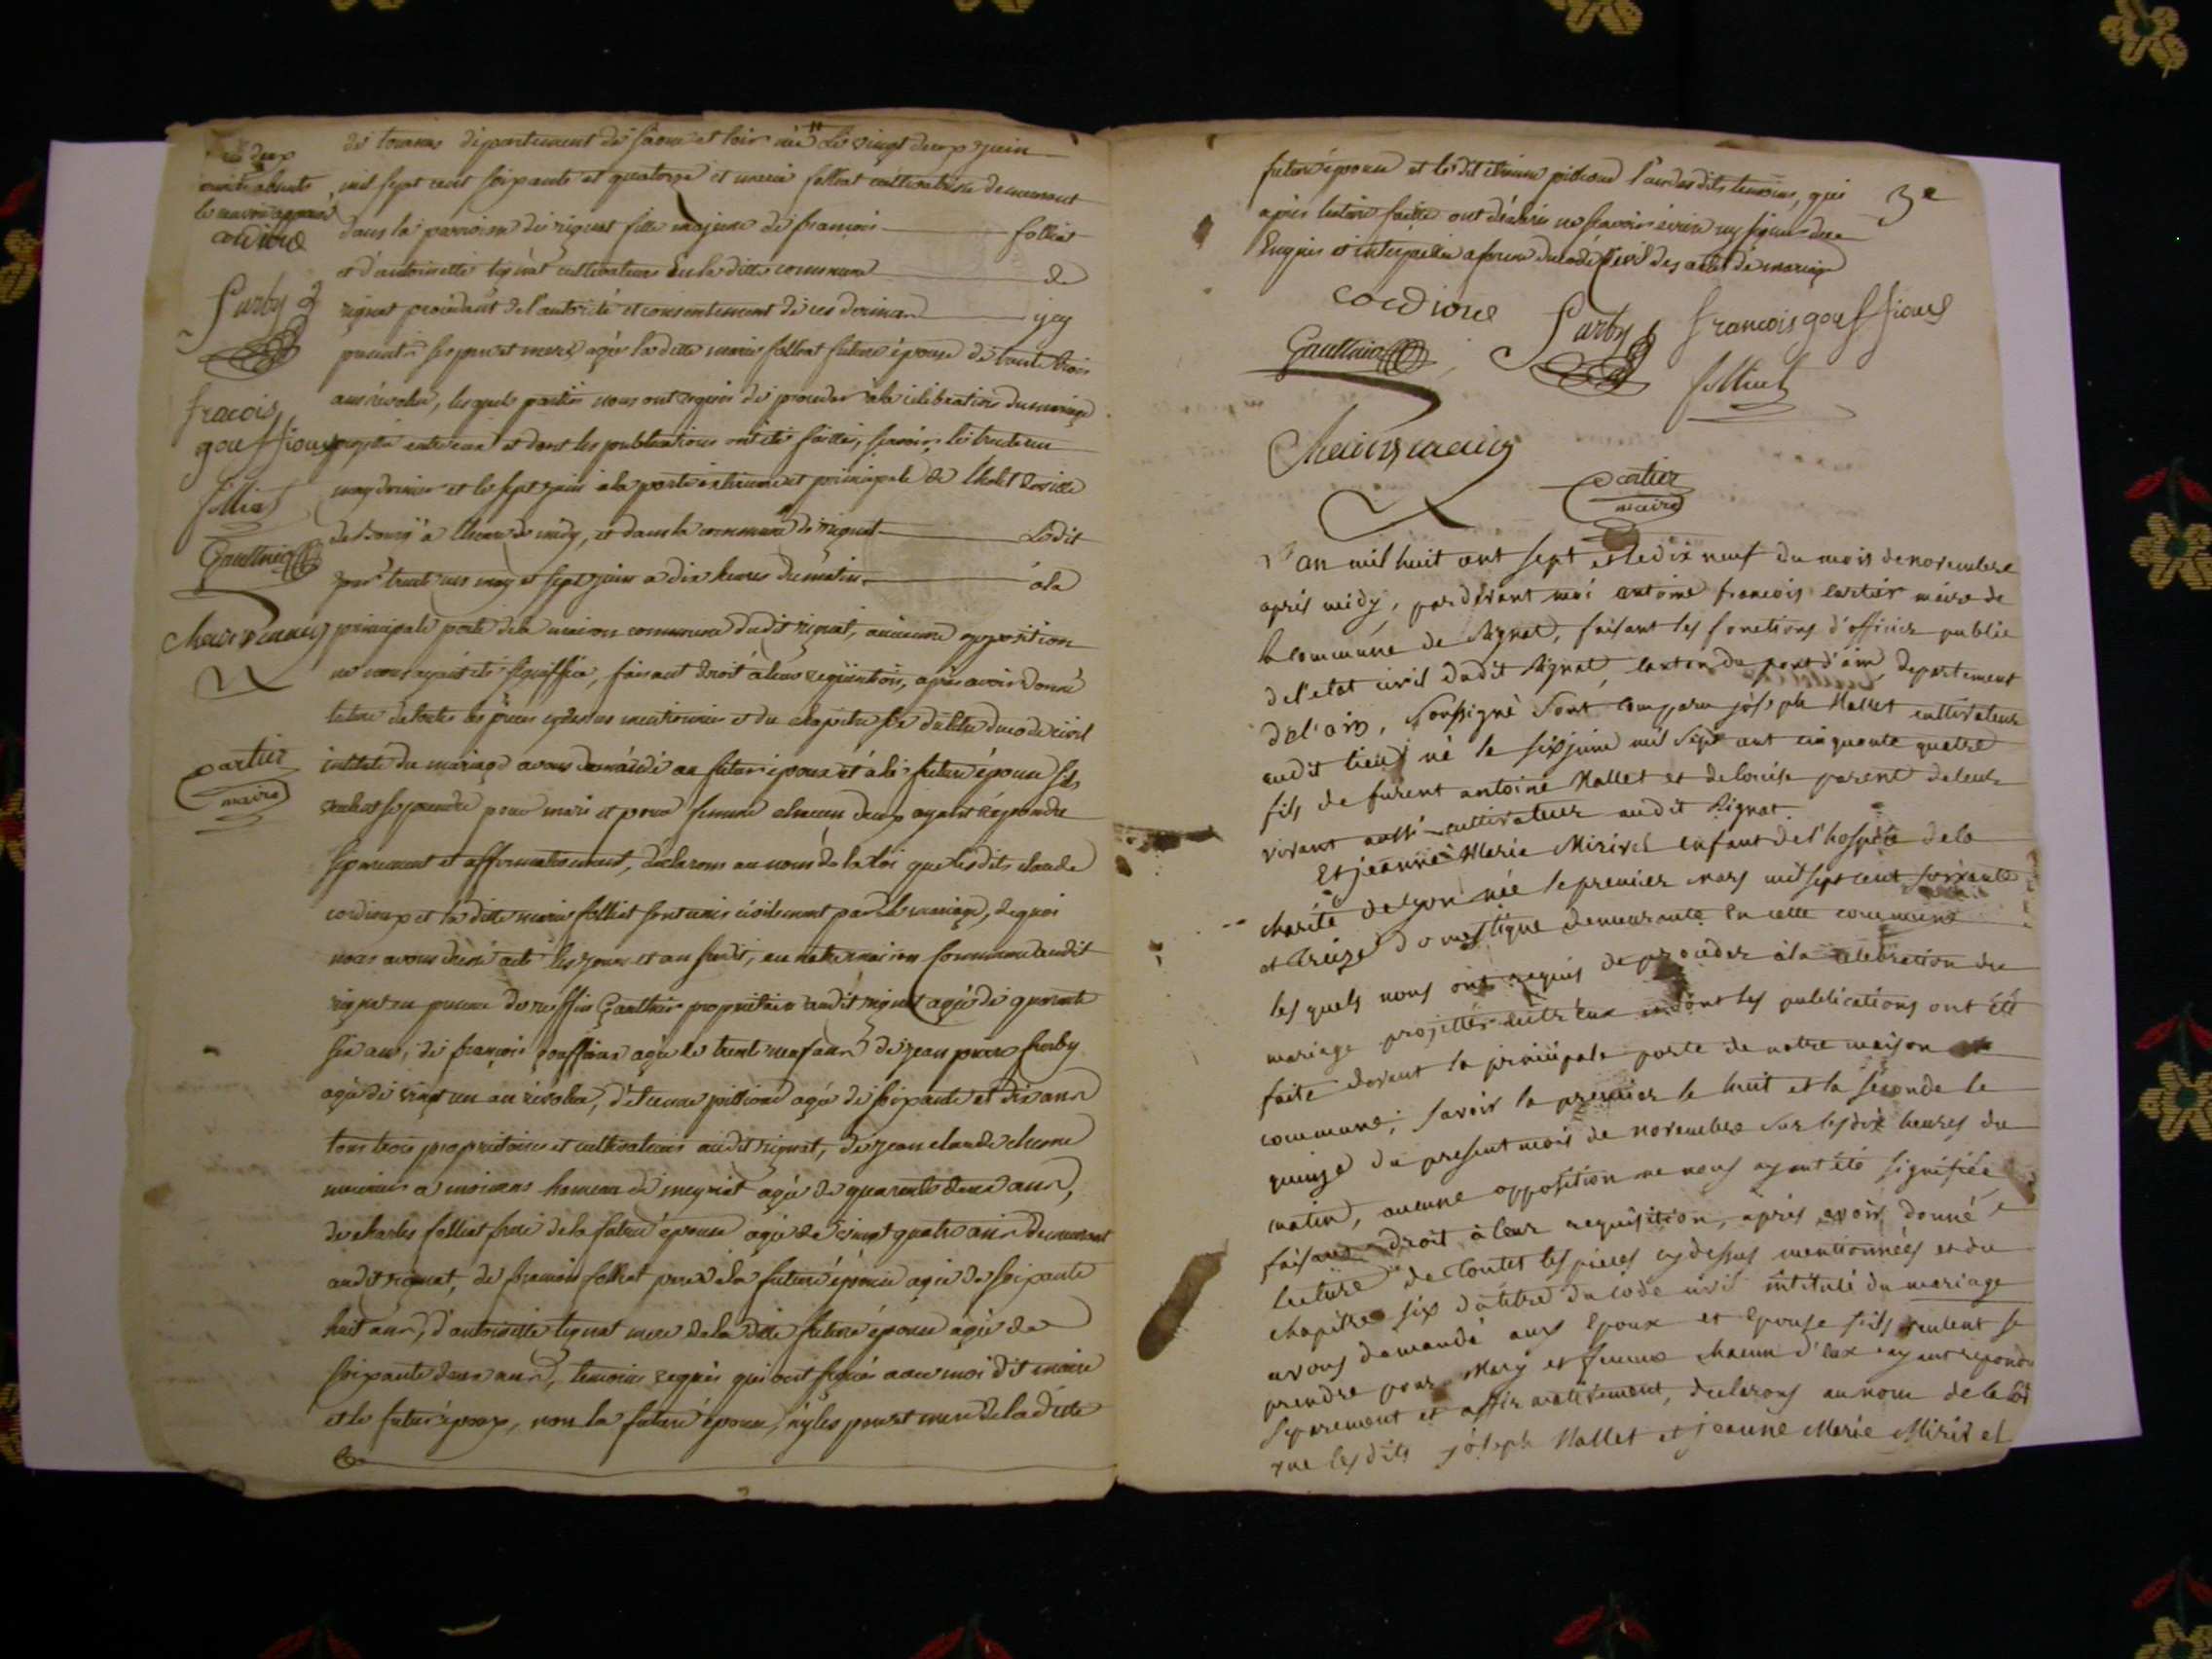 de tournus département de saone et loir née le vingt deux juin
mil sept cent soixante et quatorze et marie folliat cultivatrice demeurant
dans la parroisse de rignat fille majeure de françois folliat
et d'antoinette tignat cultivateurs en la ditte commune de
rignat procédant de l'autorité et consentement de ces derniers icy
présents ses père et mere agée la ditte marie folliat future épouse de trente trois
ans révolus, lesquels parties nous ont requis de proceder à la célébration du mariage
projetté entre eux et dont les publications ont été faittes, savoir, le trente un
may dernier et le sept juin à la porte extérieure et principale de l'hotel de ville
de Bourg à l'heure de midy, et dans la commune de rignat ledit
jour trente un may et sept juin a dix heures du matin à la
principale porte de la maison commune dudit rignat, aucunne opposition
ne nous ayant été signiffiée, faisant droit à leur requisition, après avoir donné
lecture de toutes les pièces cydessus mentionnées et du chapitre six du titre du code civil
intitulé du mariage avons demandé au futur époux et à la future épouse s'ils
veulent se prendre pour mari et pour femme chacun deux ayant répondu
séparement et affirmativement, déclarons au nom de la loi que lesdits claude
cordioux et la ditte marie folliat sont unis civilement par le mariage, de quoi
nous avons dressé acte les jours et an susdit, en notre maison commune dudit
rignat en présence de ruffin Gauthier propriétaire audit rignat agé de quarante
six ans, de françois gouffioux agé de trente neuf ans de jean pierre furby
agé de vingt un an révolu, d'étienne pilliond agé de soixante et dix ans
tous trois propriétaires et cultivateurs audit rignat, de jean claude
hameau de meyriat agé de quarante deux ans,
de charles folliat frere de la future épouse agé de vingt quatre ans demeurant
audit rignat, de françois folliat pere de la future épouse agé de soixante
huit ans, d'antoinette tignat mere de la ditte future épouse agée de
soixante deux ans, temoins requis qui ont signés avec moi dit maire
et le futur époux, non la future épouse, ny les père et mere de la ditte
cordioux
furby
fracois
gouffioux
folliat
Gaulthier
cartier
maire
3e
future épouse et le dit étienne pilliond l'un desdits temoins, qui
après lecture faitte ont déclarés ne sçavoir écrire ny signer de ce
Enquis et interpellés a forme du code civil des actes de mariage
cordioux
furby
francois gouffioux
Gaulthier
folliat
cartier
maire
L'an mil huit cent sept et le dix neuf du mois de novembre
après midy, par devant moi antoine francois cartier maire de
la commune de Rignat, faisant les fonctions d'officier public
de l'etat civil dudit Rignat, canton du pont d'ain, departement
de l'ain, soussigné sont comparu joseph Mallet cultivateur
audit lieu né le six juin mil sept cent cinquante quatre
fils de furent antoine Mallet et de louise parent de leur
vivant aussi cultivateur audit Rignat.
Et jeanne Marie Mirivel enfant de l'hospice de la
charité de lyon née le premier mars mil sept cent soixante
et treize domestique demeurante en cette commune
les quels nous ont requis de proceder à la celebration du
mariage projetter entr'eux et dont les publications ont été
faite devant la principale porte de notre maison
commune; savoir la premier le huit et la seconde le
quinze du present mois de novembre sur les dix heures du
matin, aucune opposition ne nous ayant été signifiée
faisant droit à leur requisition, après avoir donné
lecture de toutes les pieces cydessus mentionnées et du
chapitre six du titre du code civil intitulé du mariage
avons demandé aux epoux et epouse s'ils veulent se
prendre pour Mary et femme chacun d'eux ayant repondu
separement et affirmativement, declarons au nom de la loi
que lesdits joseph Mallet et jeanne Marie Mirivel